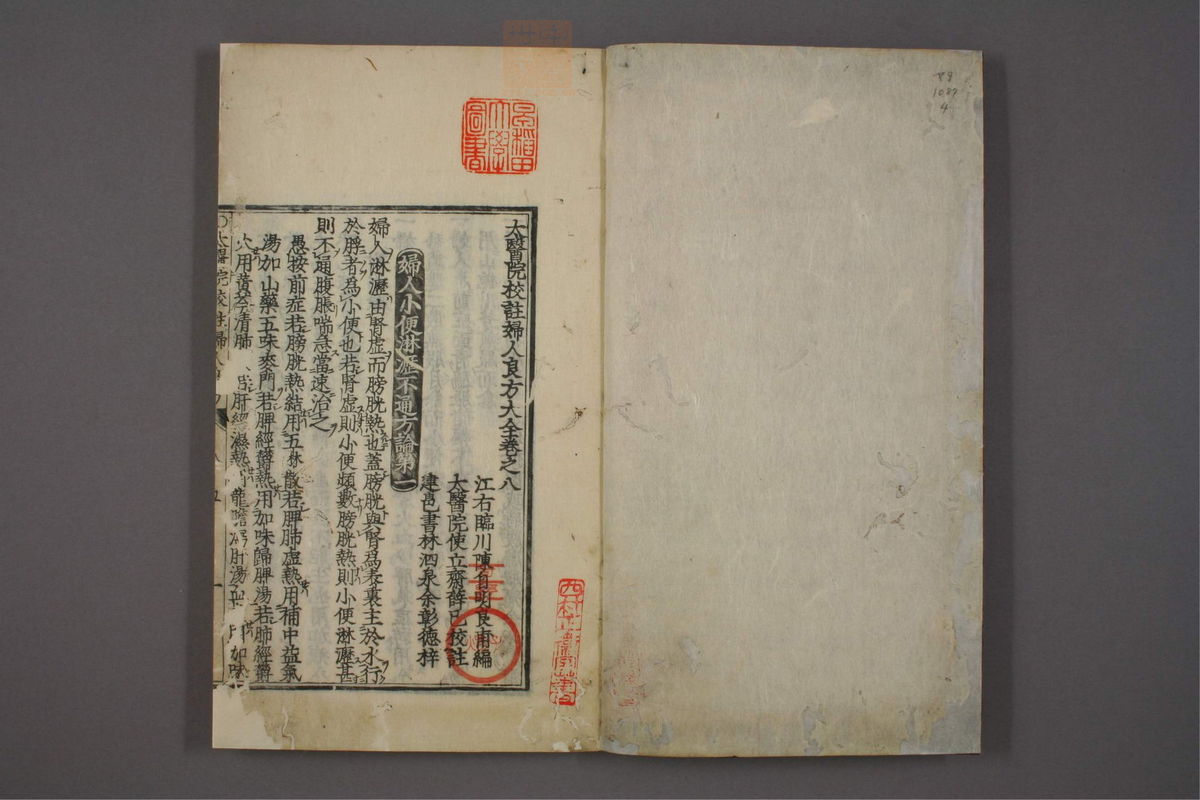 太醫院校註婦人良方大全卷之八
江右臨川陳自明良甫編
太醫院使立齋薛已校註
建邑書林泗泉余彰德梓
婦人小便淋瀝不通方論第一
婦人淋瀝由腎虛而膀胱熱也蓋膀胱與腎為表裏主於水行
於脬者為小便也若腎虛則小便頻數膀胱熱則小便淋瀝甚
則不通腹脹喘急當速治之
愚按前症若膀胱熱結用五淋散若脾肺虛熱用補中益氣
湯加山藥五味麥門若脾經鬱熱用加味歸脾湯若肺經鬱
火用黃芩清肺
肝經濕熱用龍膽瀉肝湯
加味
太醫院校註婦人
早稻田大學圖書
89
1087
4